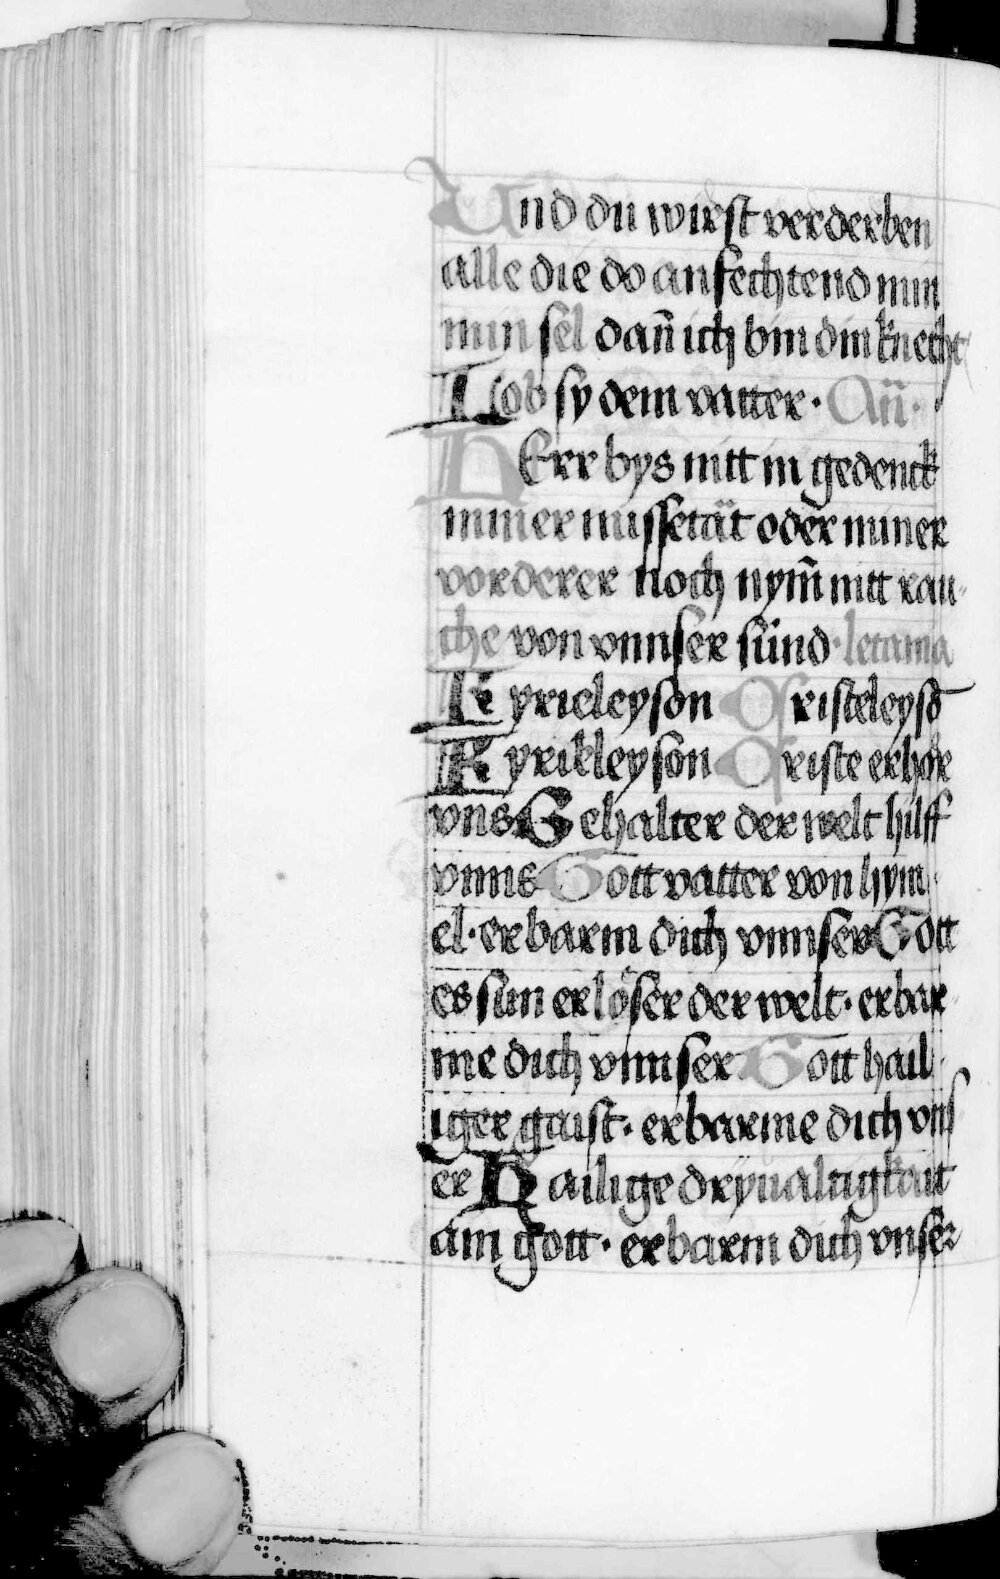 Und du wirst verderben
alle die do anfechtend min
min sel dañ ich bin din knecht
Lob sy dem vatter · Añ ·
HErr bys nitt in gedenck
miner missetät oder miner
vorderer noch nym̃ nitt rau
che von vnnser sünd · letania
Kyrieleyson Cristeleysō
Kyrieleyson Criste erhör
vns Gehalter der welt hilff
vnns Gott vatter von hym
el · erbarm dich vnnser Gott
es sun erlöser der welt · erbar
me dich vnnser Gott hail
iger gaist · erbarme dich vns
er Hailige dryualtigkait
ain gott · erbarm dich vnser